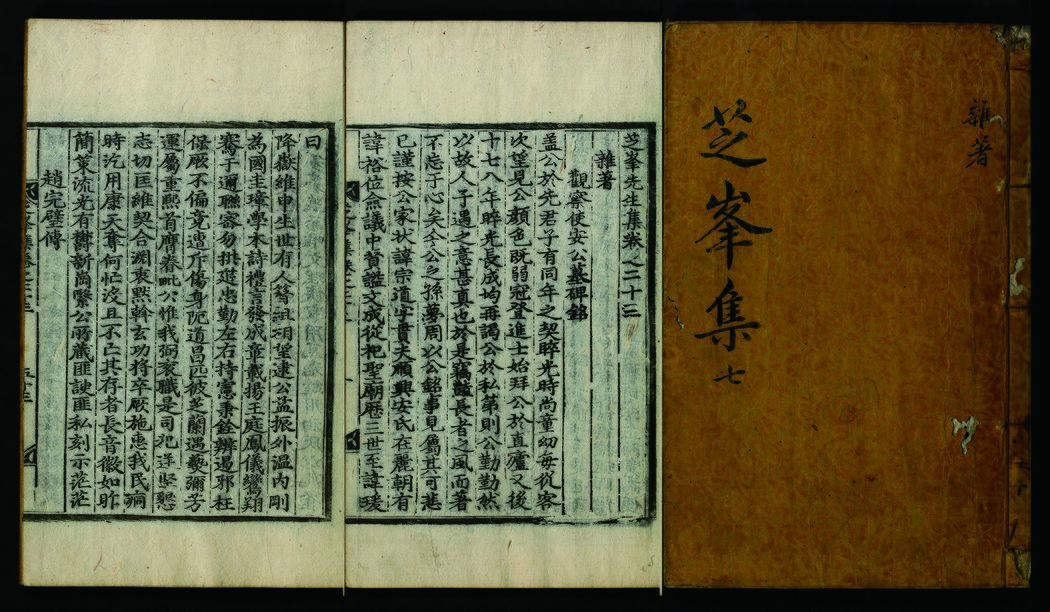 雜著
芝峯集 七
芝峯先生集卷之二十三
雜著
觀察使安公墓碑銘
盖公於先君子有同年之契睟光時尚童幼每從客
次望見公顔色既弱冠登進士始拜公於直廬又後
十七八年睟光長成均再謁公於私第則公勤勤然
以故人子遇之意甚眞也於是竊艶長者之風而著
不忘于心矣今公之孫夢周以公銘事見屬其可悲
已謹按公家狀諱宗道字貴夫順興安氏在麗朝有
諱裕位僉議中賛謚文成從祀聖廟歷三世至諱瑗
曰
降嶽維申生世有人簪組相望逮公益振外溫內剛
為國圭璋學本詩禮言發成章戴揚王庭鳳儀鸞翔
騫于邇聯密勿拱莚忠勤左右持憲秉銓辨遏邪枉
保厥不偏竟遭斥傷身阨道昌匹彼芝蘭遇爇彌芳
運屬重熙首膺眷毗公惟我弼衮職是司堅懇
志切匡維契合淵衷黙斡玄功將卒厥施惠我民恫
時汔用康天奪何忙沒且不亡其存者長音徽如昨
簡策流光有欝新岡繄公所藏匪諛匪私刻示茫茫
趙完璧傳